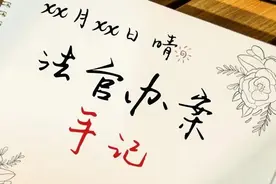 xx月xx日 晴
法官办案
手记